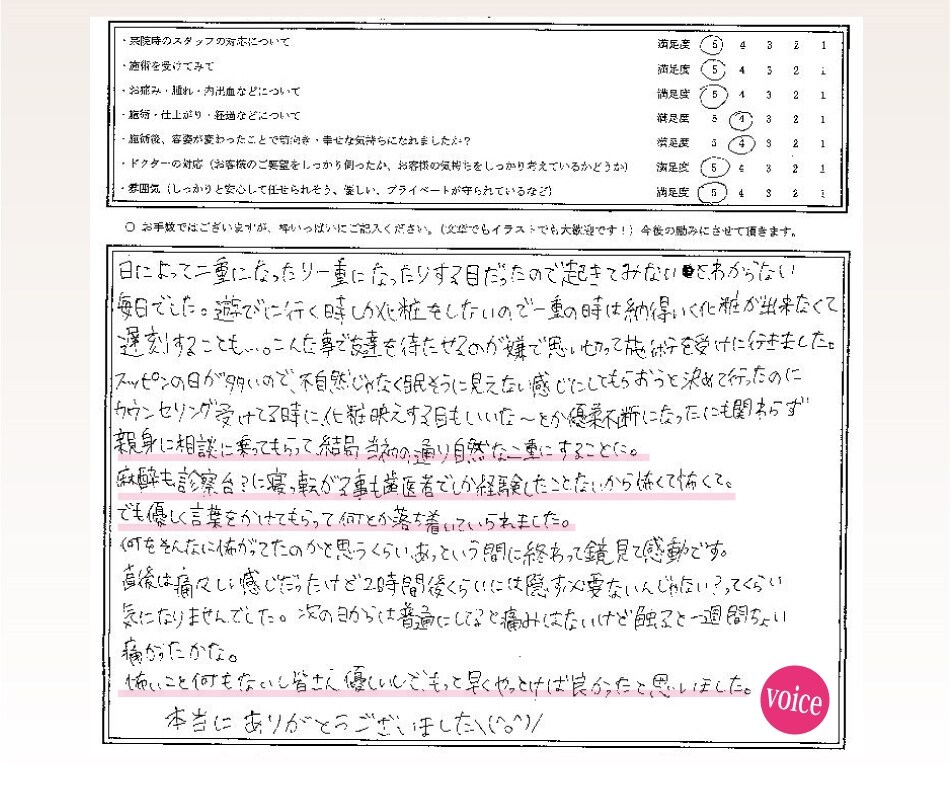 ・来院時のスタッフの対応について 満足度 5 4 3 2 1
・施術を受けてみて 満足度 5 4 3 2 1
・お痛み・腫れ・内出血などについて 満足度 5 4 3 2 1
・施術・仕上がり・経過などについて 満足度 5 4 3 2 1
・施術後、容姿が変わったことで前向き・幸せな気持ちになれましたか？ 満足度 5 4 3 2 1
・ドクターの対応（お客様のご要望をしっかり伺ったか、お客様の気持ちをしっかり考えているかどうか） 満足度 5 4 3 2 1
・雰囲気（しっかりと安心して任せられそう、優しい、プライベートが守られているなど） 満足度 5 4 3 2 1
○ お手数ではございますが、枠いっぱいにご記入ください。（文章でもイラストでも大歓迎です！）今後の励みにさせて頂きます。
日によって二重になったり一重になったりする目だったので起きてみないとわからない
毎日でした。遊びに行く時しか化粧をしないので一重の時は納得いく化粧が出来なくて
遅刻することも…。こんな事で友達を待たせるのが嫌で思い切って施術を受けに行きました。
スッピンの日が多いので、不自然じゃなく眠そうに見えない感じにしてもらおうと決めて行ったのに
カウンセリング受けてる時に、化粧映えする目もいいな〜とか優柔不断になったにも関わらず
親身に相談に乗ってもらって、結局当初の通り自然な二重にすることに。
麻酔も診察台？に寝っ転がる事も歯医者でしか経験したことないから怖くて怖くて。
でも優しく言葉をかけてもらって何とか落ち着いていられました。
何をそんなに怖がってたのかと思うくらい、あっという間に終わって鏡見て感動です。
直後は痛々しい感じだったけど2時間後くらいには隠す必要ないんじゃない？ってくらい
気になりませんでした。次の日からは普通にしてると痛みはないけど触ると一週間ちょい
痛かったかな。
怖いこと何もないし皆さん優しいしで、もっと早くやっとけば良かったと思いました。
本当にありがとうございました\(^o^)/
voice